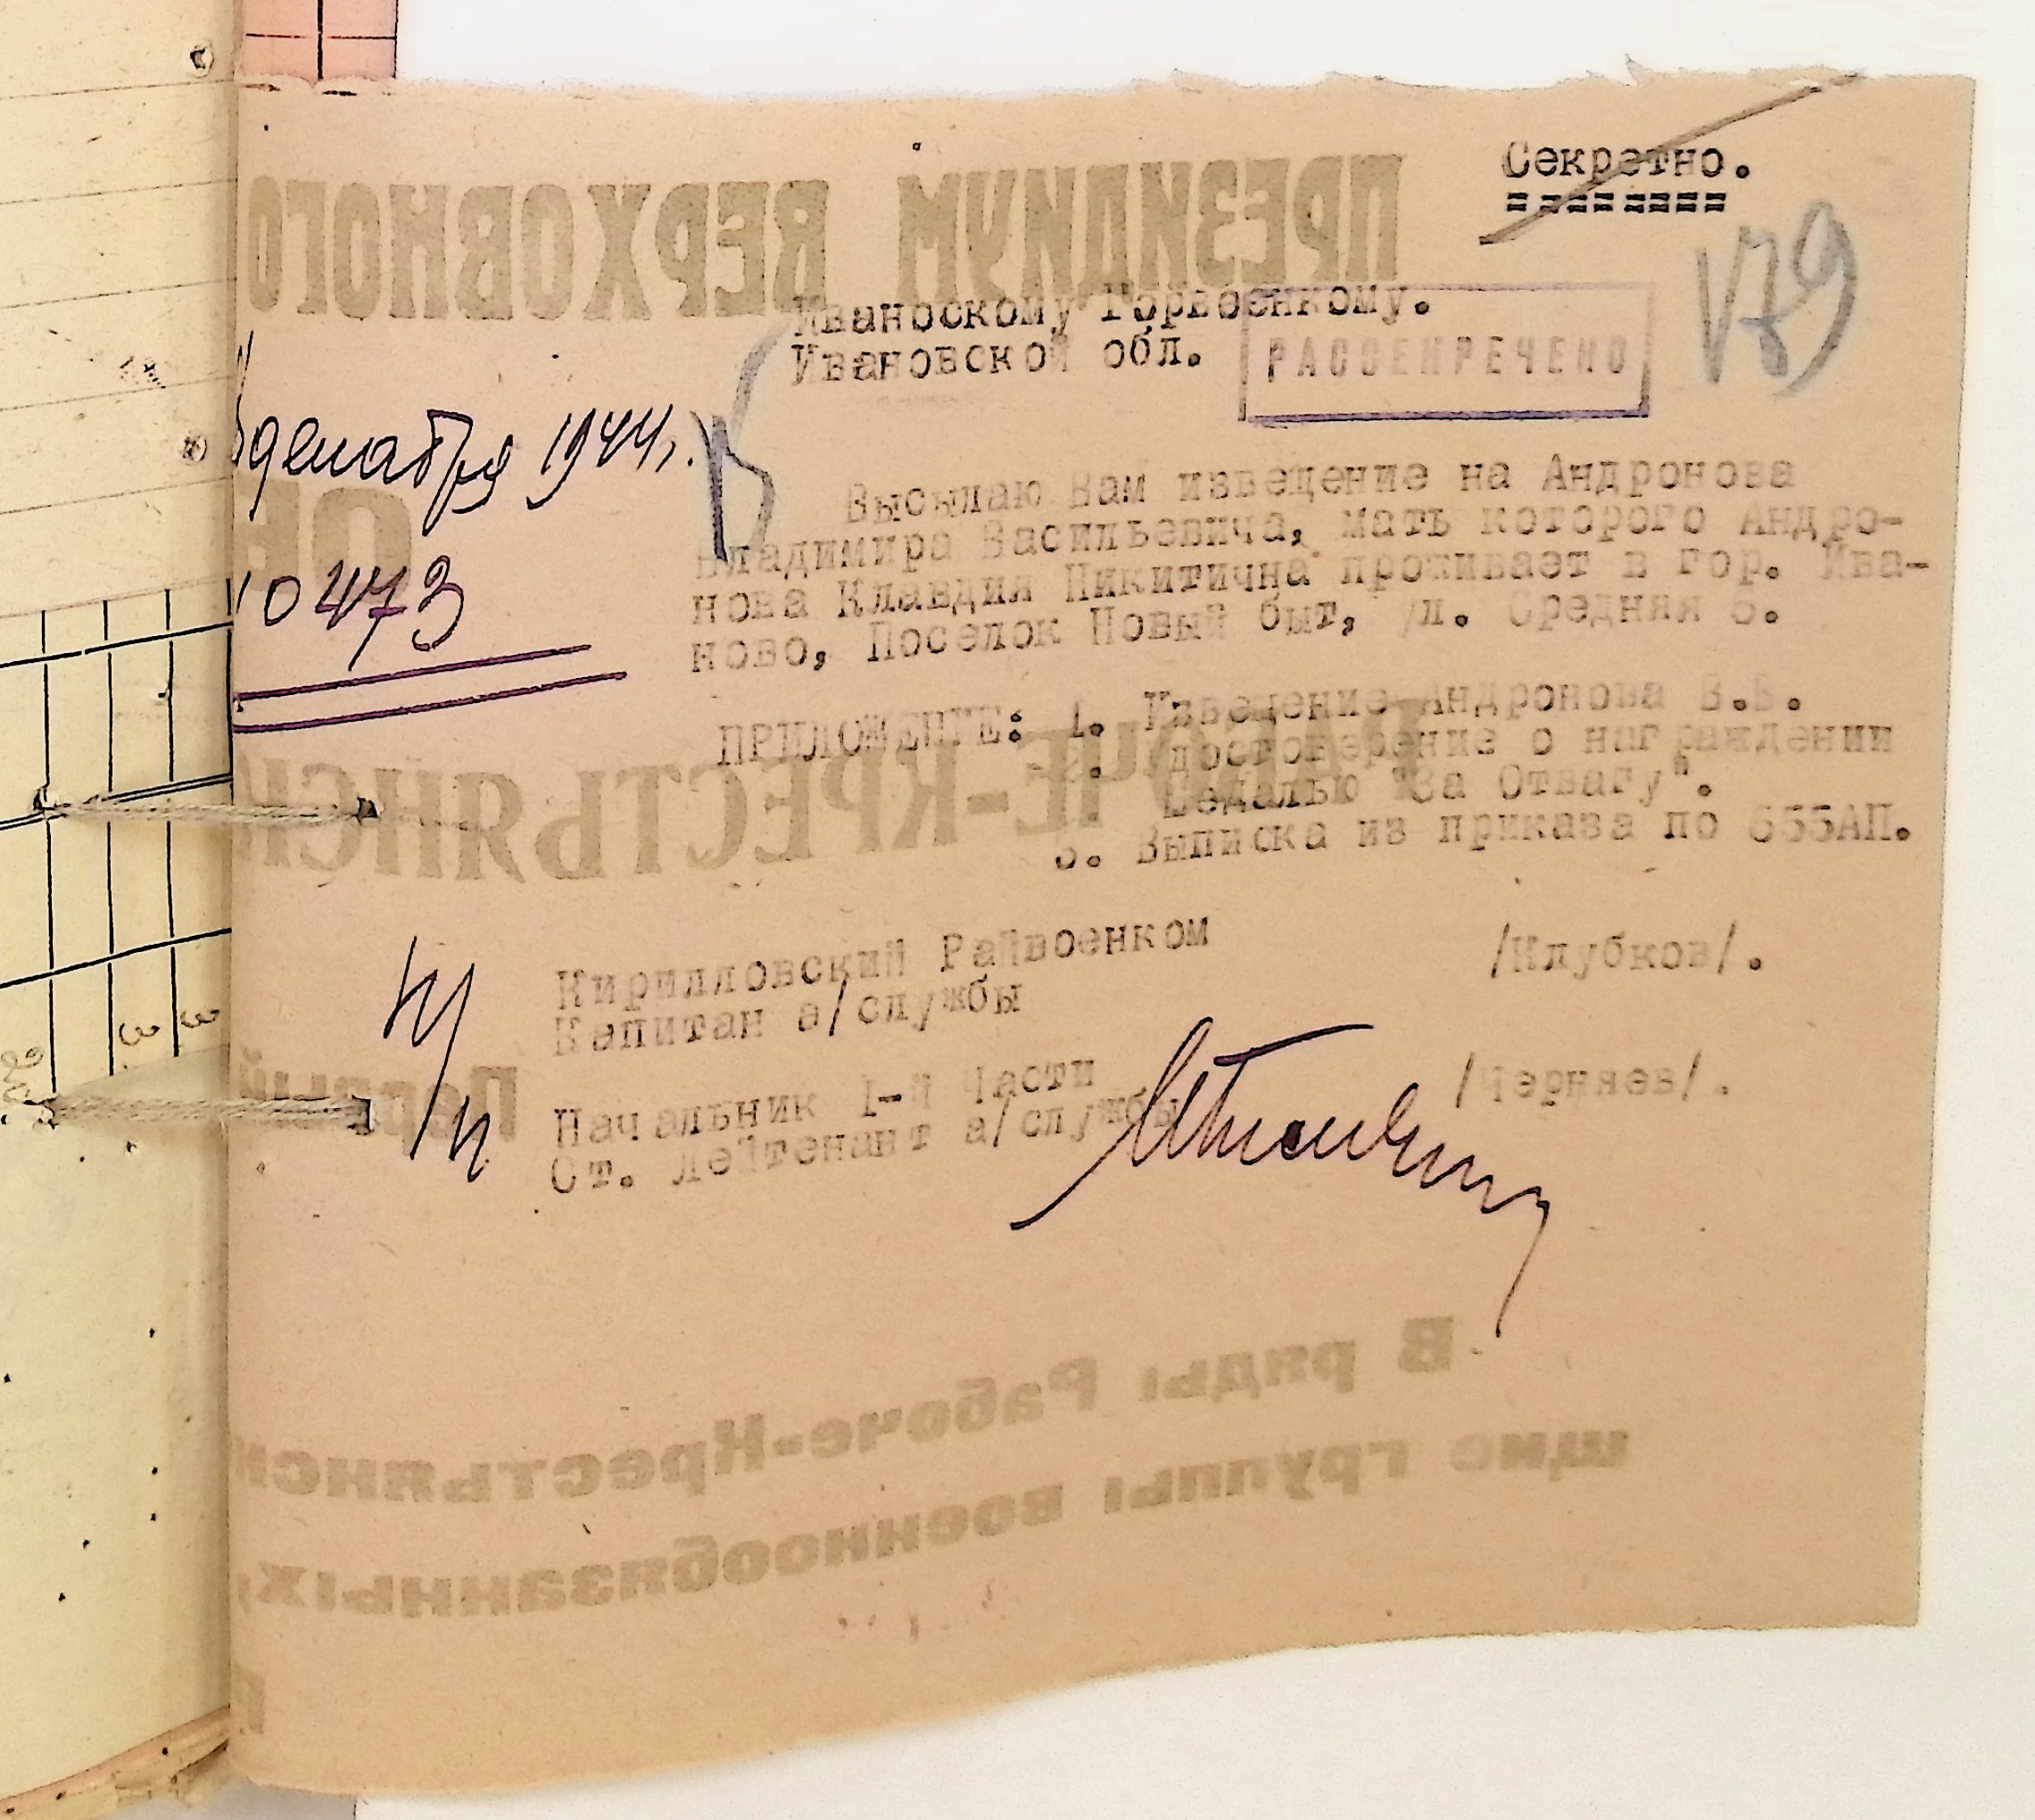 Секретно.
179
Иваноскому Горвоенкому.
Ивановской обл.
РАССЕКРЕЧЕНО
декабря 1944г.
10473
Высылаю Вам извещение на Андронова
Владимира Васильевича, мать которого Андро-
нова Клавдия Никитична проживает в гор. Ива-
ново, Поселок Новый быт, ул. Средняя 6.
ПРИЛОЖЕНИЕ: 1. Извещение Андронова В.В.
2. Удостоверение о награждении
Медалью "За Отвагу".
3. Выписка из приказа по 655АП.
Кирилловский Райвоенком
Капитан а/службы
/Клубков/.
п/п
Начальник 1-й Части
Ст. лейтенант а/службы
/Черняев/.
ПРЕЗИДИУМ ВЕРХОВНОГО
Е-КРЕСТЬЯНСК
Первый
В ряды Рабоче-Крестьянск
щие группы военнообязанных,